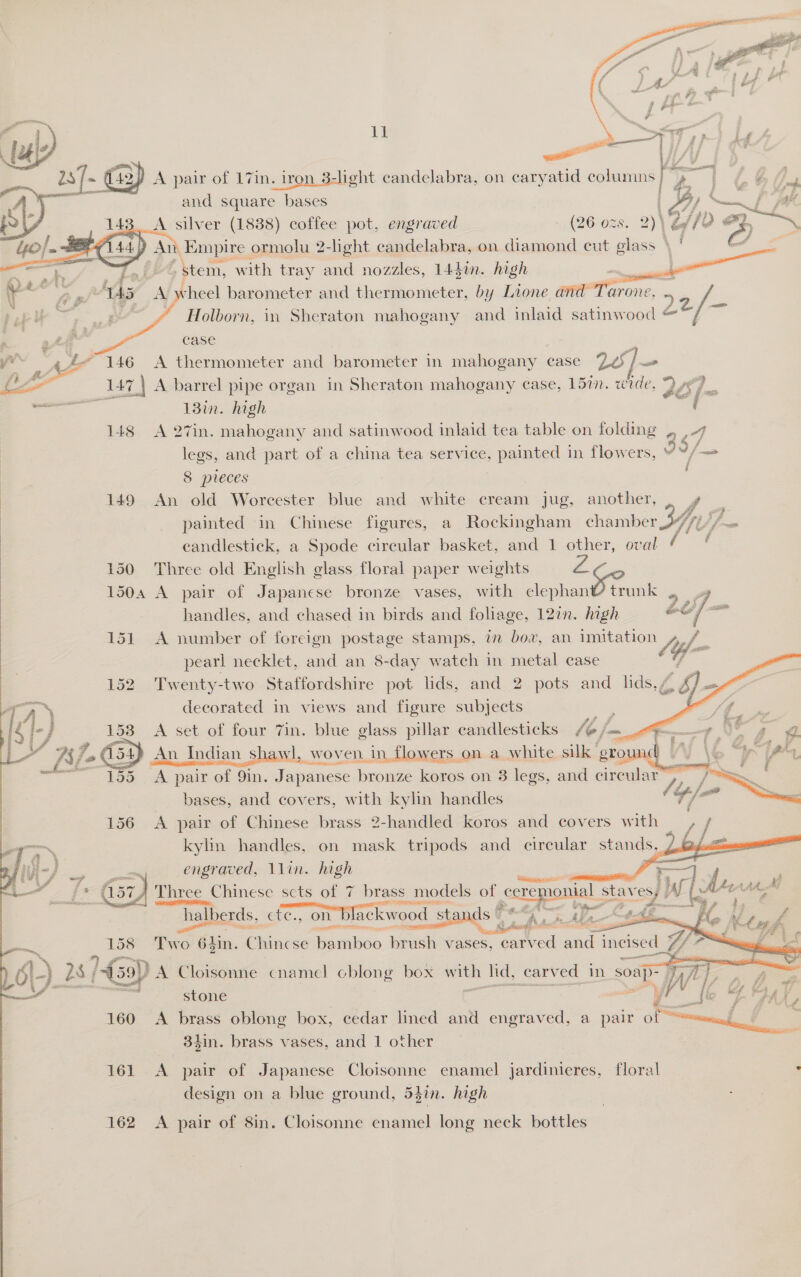 11
25/- 142 A pair of 17in. iron 3-light candelabra, on caryatid columns
and square bases
143 A silver (1838) coffee pot, engraved (26 ozs. 2)
40/- 144 An Empire ormolu 2-light candelabra, on diamond cut glass
stem, with tray and nozzles, 14½in. high
145 A wheel barometer and thermometer, by Lione and Tarone,
Holborn, in Sheraton mahogany and inlaid satinwood
case
146 A thermometer and barometer in mahogany case
147 A barrel pipe organ in Sheraton mahogany case, 15in. wide,
13in. high
148 A 27in. mahogany and satinwood inlaid tea table on folding
legs, and part of a china tea service, painted in flowers,
8 pieces
149 An old Worcester blue and white cream jug, another,
painted in Chinese figures, a Rockingham chamber
candlestick, a Spode circular basket, and 1 other, oval
150 Three old English glass floral paper weights
150A A pair of Japanese bronze vases, with elephant trunk
handles, and chased in birds and foliage, 12in. high
151 A number of foreign postage stamps, in box, an imitation
pearl necklet, and an 8-day watch in metal case
152 Twenty-two Staffordshire pot lids, and 2 pots and lids,
decorated in views and figure subjects
153 A set of four 7in. blue glass pillar candlesticks
154 An Indian shawl, woven in flowers on a white silk ground
155 A pair of 9in. Japanese bronze koros on 3 legs, and circular
bases, and covers, with kylin handles
156 A pair of Chinese brass 2-handled koros and covers with
kylin handles, on mask tripods and circular stands,
engraved, 11in. high
157 Three Chinese sets of 7 brass models of ceremonial staves,
halberds, etc., on blackwood stands
158 Two 6½in. Chinese bamboo brush vases, carved and incised
159 A Cloisonne enamel oblong box with lid, carved in soap-
stone
160 A brass oblong box, cedar lined and engraved, a pair of
3½in. brass vases, and 1 other
161 A pair of Japanese Cloisonne enamel jardinieres, floral
design on a blue ground, 5½in. high
162 A pair of 8in. Cloisonne enamel long neck bottles